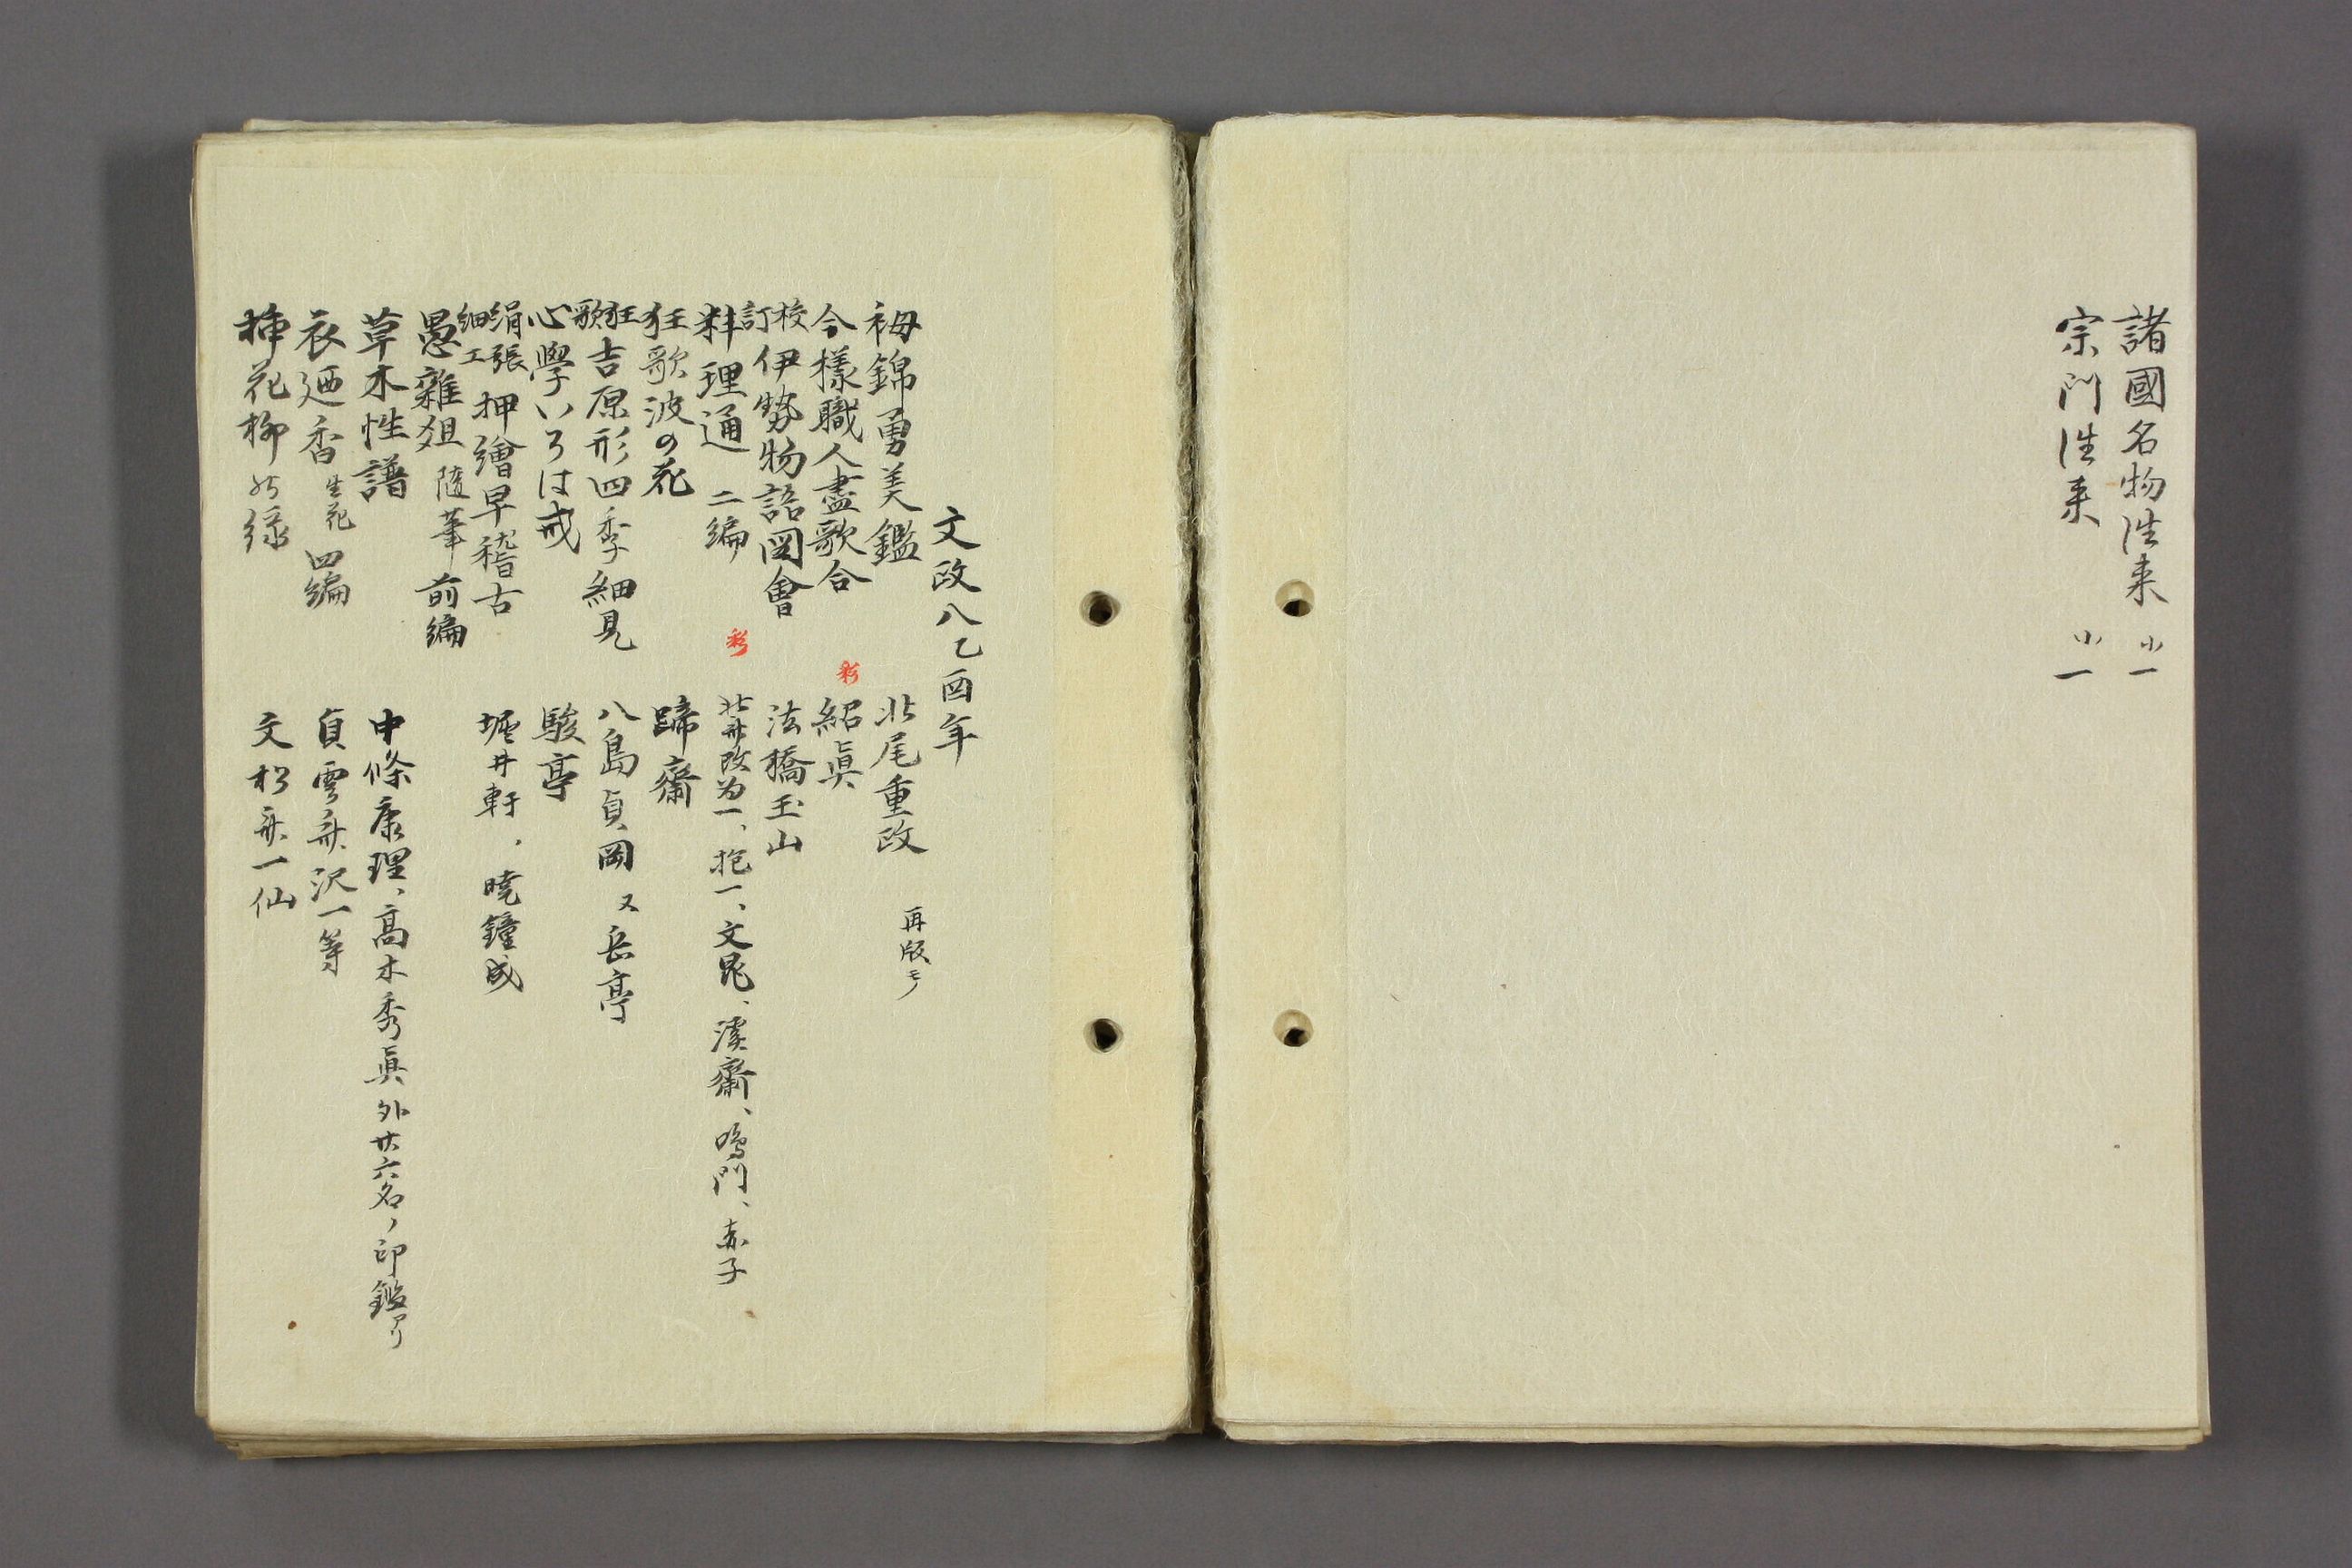 諸國名物往来 小一
宗門往来 小一
文政八乙酉年
錦勇美鑑 北尾重政 再版
今樣職人盡歌合 彩 紹眞
校訂 伊勢物語図會 法橋玉山
料理通 二編 彩 北斎改為一、抱一、文晁、溪齋、鳴門、赤子
狂歌波の花 蹄齋
狂歌 吉原形四季細見 八島貞岡 又岳亭
心學いろは戒 駿亭
絹張細工 押繪早稽古 堀井軒、曉鐘成
愚雜俎 隨筆 前編
草木性譜 中條康理、高木秀眞 外廿六名ノ印鑑アリ
衣廼香 生花 四編 貞雲斎沢一等
挿花柳 文松斎一仙